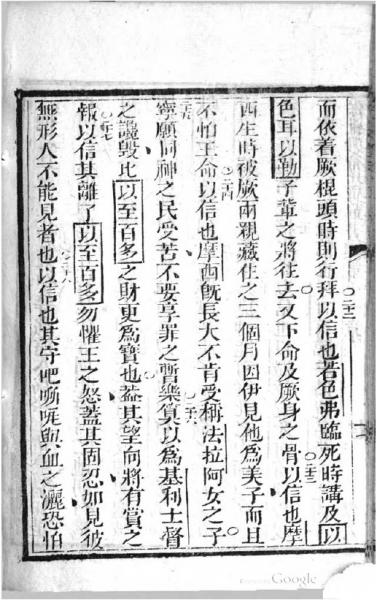 而依着厥棍頭時則行拜以信也若色弗臨死時講及以
色耳以勒子輩之將往去又下命及厥身之骨以信也摩
西生時被厥兩親藏住之三個月因伊見他爲美子而且
不怕王命以信也摩西旣長大不肯受稱法拉阿女之子
寧願同神之民受苦不要享罪之暫樂算以爲基利士督
之譏毀比以至百多之財更爲寶也葢其望向將有賞之
報以信其離了以至百多勿懼王之怒葢其固忍如見彼
無形人不能見者也以信也其守吧與血之灑恐怕
Google